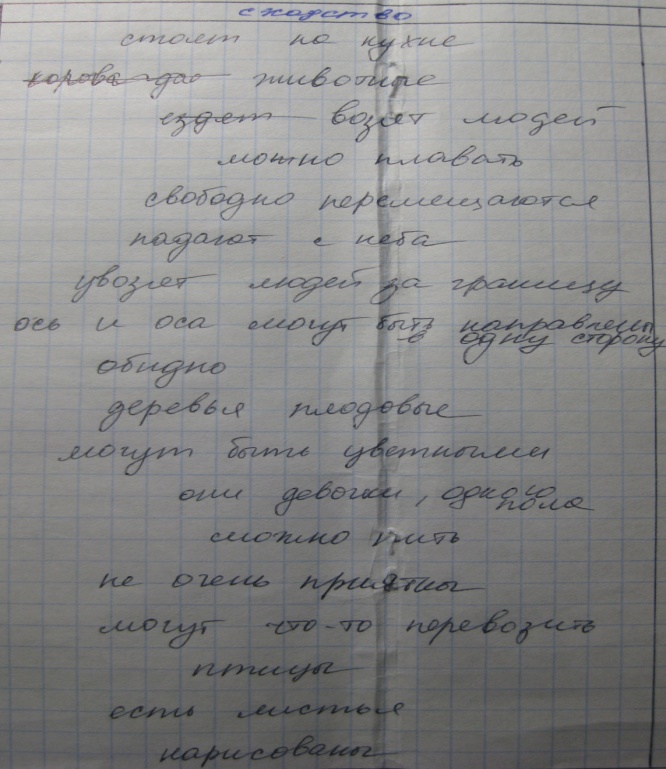 сходство
стоят на кухне
корова дао животные
ездят возят людей
можно плавать
свободно перемещаются
падают с неба
увозят людей за границу
ось и оса могут быть направлены
в одну сторону
обидно
деревья плодовые
могут быть цветными
они девочки, одного
пола
можно пить
не очень приятны
могут что-то перевозить
птицы
есть листья
нарисованы